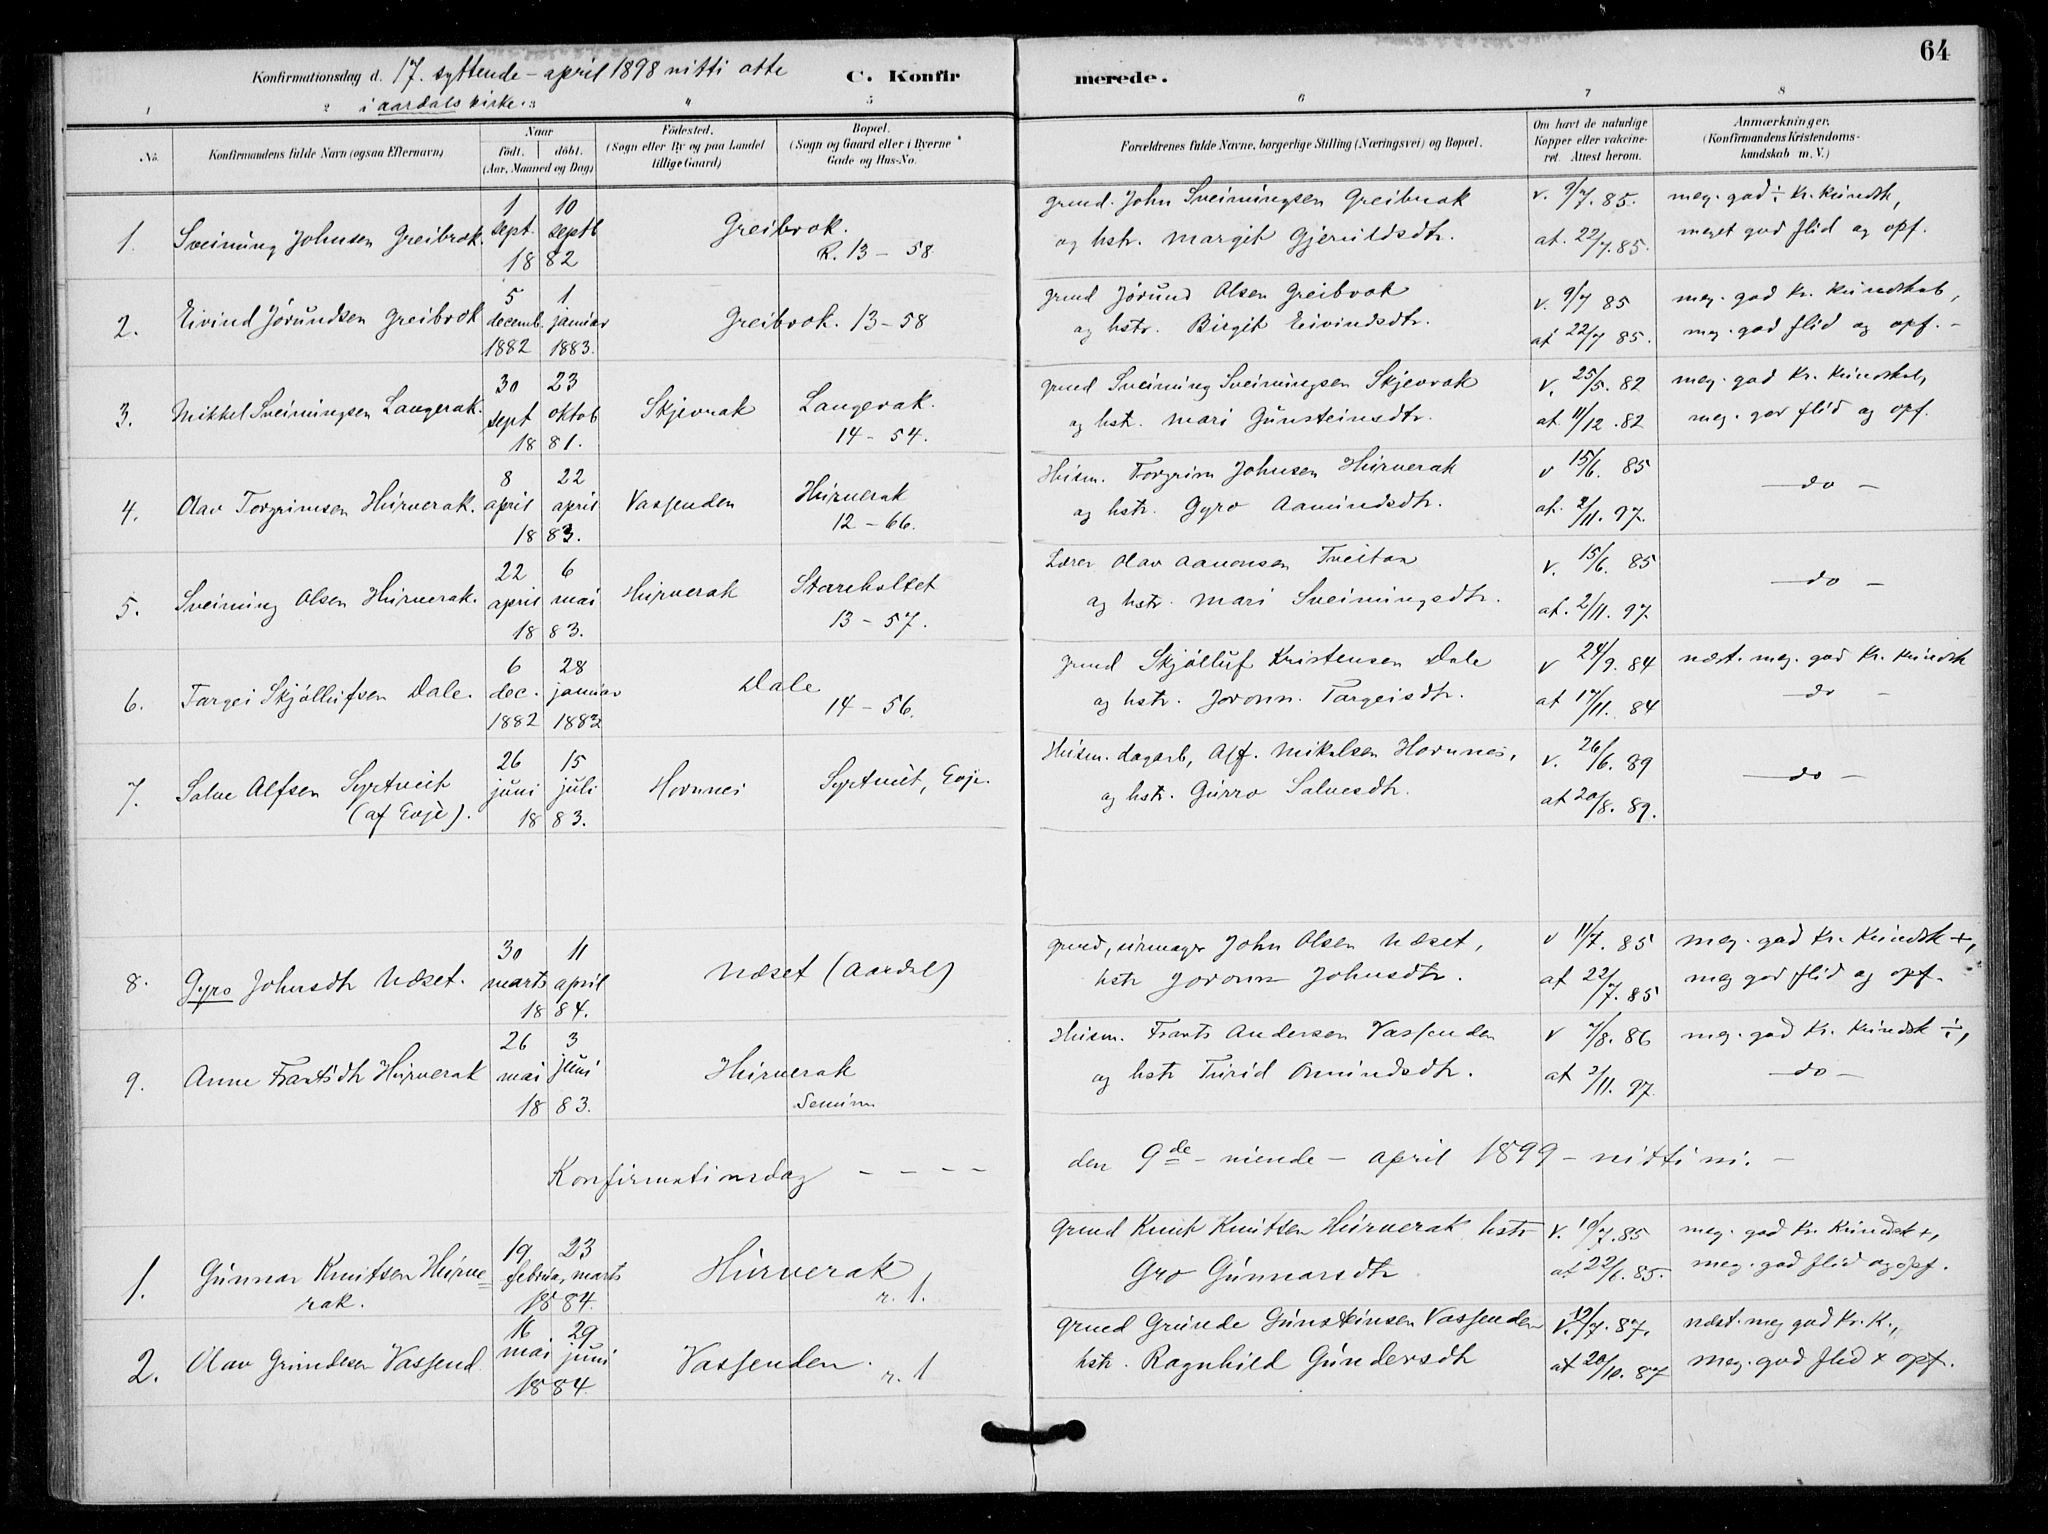 64
Konfirmationsdag d. 17. syttende - april 1898 nitti otte C. Konfirmerede.
i aardals kirke.
1 2 3 4 5 6 7 8
No. Konfirmandens fulde Navn (ogsaa Efternavn) Naar födt. döbt. (Aar, Maaned og Dag) Födested. (Sogn eller By og paa Landet tillige Gaard) Bopæl. (Sogn og Gaard eller i Byerne Gade og Hus-No. Forældrenes fulde Navne, borgerlige Stilling (Næringsvei) og Bopæl. Om havt de naturlige Kopper eller vakcineret. Attest herom. Anmærkninger. (Konfirmandens Kristendomskundskab m. V.)
1. Sveinung Johnsen Greibrok. 1 sept. 10 septb 1882 Greibrok. R. 13 - 58
grund. John Sveinungsen Greibrok v. 9/7. 85. meg. god ÷ kr. kundsk,
og hstr. Margit Gjeruldsdtr. at. 22/7. 85. meget god flid og opf.
2. Eivind Jörundsen Greibrok 5 decemb. 1882 1 januar 1883. Greibrok. 13 - 58
grund Jörund Olsen Greibrok v. 9/7 85 meg. god kr. kundskab,
og hstr. Birgit Eivindsdtr. at 22/7 85. meg. god flid og opf. -
3. Mikkel Sveinungsen Langerak. 30 sept 23 oktob 1881. Skjevrak Langerak. 14 - 54.
grund Sveinung Sveinungsen Skjevrak v. 25/5. 82 meg. god kr. kundskab,
og hstr. Mari Gunsteinsdtr. at 11/12. 82 meg. god flid og opf.
4. Olav Torgrimsen Hurverak. 8 april 22 april 1883. Vassenden Hurverak 12 - 66.
Husm. Torgrim Johnsen Hurverak v 15/6. 85 - do -
og hstr. Gyro Aamundsdtr. at. 2/11. 97.
5. Sveinung Olsen Hurverak. 22 april 6 mai 1883. Hurverak Stareholtet 13 - 57.
Lærer Olav Aanonsen Tveitan v. 15/6. 85 - do -
og hstr. Mari Sveinungsdtr. at. 2/11. 97
6. Targei Skjöllufsen Dale. 6 dec. 1882 28 januar 1883 Dale 14 - 56.
grund Skjölluf Kristensen Dale v 24/9. 84 næst. meg. god kr. kundsk
og hstr. Joronn. Targeisdtr. at 17/11. 84 - do -
7. Salve Alfsen Syrtveit (af Evje). 26 juni 15 juli 1883. Hornnes Syrtveit, Evje.
Husm. dagarb, Alf. Mikalsen Hornnes, v. 26/6. 89 - do -
og hstr. Gurro Salvesdtr. at 20/8. 89.
8. Gyro Johnsdtr Næset. 30 marts 11 april 1884. Næset (Aardal)
grund, urmager John Olsen Næset, v 11/7. 85 meg. god kr. kundsk +,
hstr Joronn Johnsdtr. at 22/7. 85 meg god flid og opf.
9. Anne Frantsdtr Hurverak 26 mai 3 juni 1883. Hurverak
Husm. Frants Andersen Vassenden v 7/8. 86 meg. god kr. kundsk ÷,
og hstr Turid Omundsdtr. at 2/11. 97. - do -
Konfirmationsdag - - - - den 9de - niende - april 1899 - nitti ni. -
1. Gunnar Knutsen Hurverak. 19 februar 23 marts 1884. Hurverak r. 1.
Grund Knut Knutsen Hurverak hstr v. 10/7. 85 meg. god kr. kundsk +,
Gro Gunnarsdtr at 22/6. 85. meg. god flid og opf.
2. Olav Grundesen Vassend 16 mai 29 juni 1884. Vassenden. r. 1
Grund Grunde Gunsteinsen Vassenden v. 12/7. 87. næst. meg god kr. k.,
hstr. Ragnhild Gundersdtr at 20/10. 87 meg. god flid + opf.